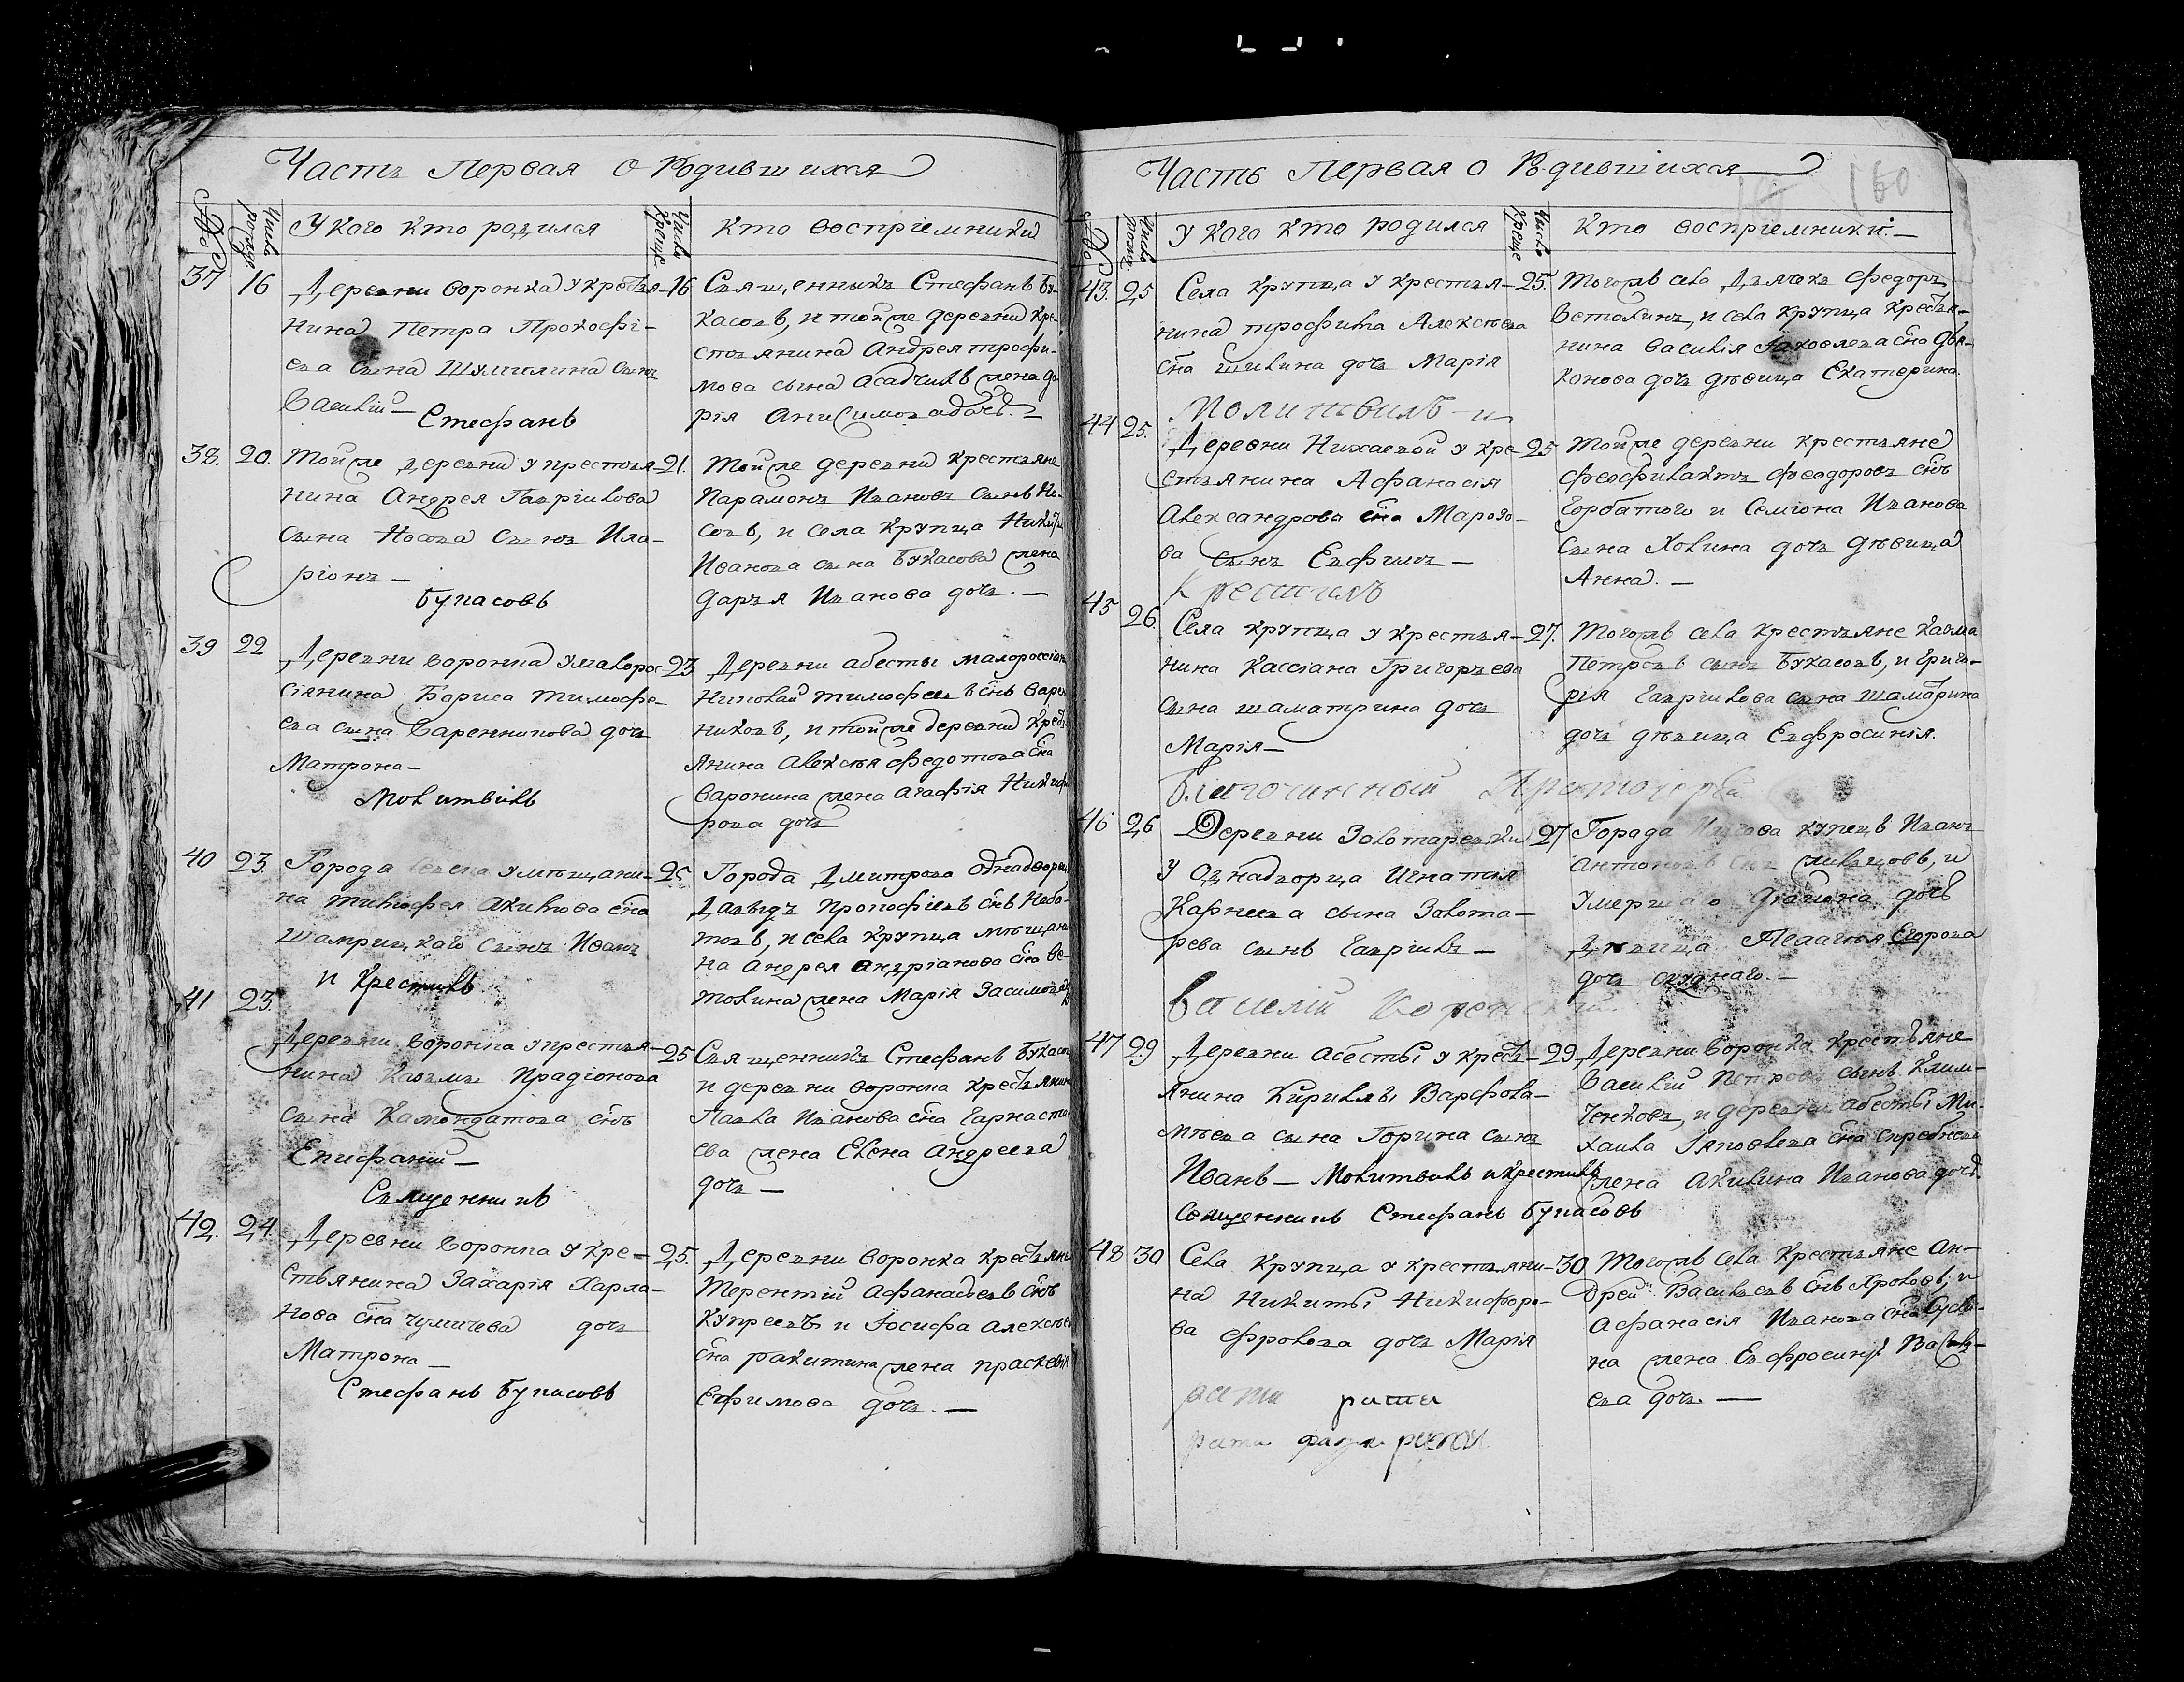 Часть Первая о Родившихся
№
Число рожде
У кого кто родился
Число креще
Кто восприемники
37 16 Деревни Воронка у крестья- 16
нина Петра Прокофі-
ева сына Шумилина сынъ
Василій —
Стефанъ
Священникъ Стефанъ Бу-
касовъ, и той же деревни кре-
стьянина Андрея Трофи-
мова сына Асадчикъ жена Да-
рія Анисимова дочь. —
38. 20. Той же деревни у крестья- 21.
нина Андрея Гаврилова
сына Носова сынъ Ила-
ріонъ —
Букасовъ
Той же деревни крестьяне
Парамонъ Ивановъ сынъ Но-
совъ, и села Крупца
Иванова сына Букасова жена
Дарья Иванова дочь. —
39 22 Деревни Воронка у малорос- 23
сіянина Бориса Тимофе-
ева сына Вареникова дочь
Матрона —
Молитвилъ
Деревни Абесты малороссіян
Николай Тимофеевъ снъ Варе
никовъ, и той же деревни крест
янина Алексѣя Федотова сна
Воронина жена Агафія Никиф
рова дочь
40 23. Города у мѣщани- 25
на Тимофея Акимова сна
сынъ Иванъ
и Крестилъ
Города Дмитрова однадворец
Давыдъ Прокофіевъ снъ Наба-
товъ, и села Крупца мѣщани
на Андрея Андріанова сна Ве-
толкина жена Марія Засимова
41 23.
Деревни Воронка у крестья- 25
нина Казьмы Иродіонова
сына сынъ
Епифаній —
Священникъ
Священникъ Стефанъ Букасов
и деревни Воронка крестьянин
Павла Иванова сна Гарноста
ева жена Елена Андреева
дочь —
42. 24 Деревни Воронка у кре- 25.
стьянина Захарія Харла-
нова сна Чумичева дочь
Матрона —
Стефанъ Букасовъ
Деревни Воронка крестьяне
Терентій Афанасьевъ снъ
Купреевъ и Іосифа Алексѣев
сна Ракитина жена Праскевія
Ефимова дочь. —
Часть Первая о Родившихся
160
№
Число рожд.
У кого кто родился
Число креще
Кто восприемники. —
43. 25 Села Крупца у крестья- 25.
нина Трофима Алексѣева
сна Шилина дочь Марія
Молитвилъ и
Тогожъ села Дьячекъ Федоръ
Ветолкинъ, и села Крупца крестья-
нина Василія Яковлева сна Дья-
конова дочь дѣвица Екатерина.
44 25. Деревни Нихаевой у кре- 25
стьянина Афанасія
Александрова сна Морозо-
ва сынъ Евфимъ —
Крестилъ
Той же деревни крестьяне
Феофилактъ Феодоровъ снъ
Горбатого и Семіона Иванова
сына Холина дочь дѣвица
Анна. —
45 26. Села Крупца у крестья- 27.
нина Кассіана Григорьева
сына Шаматрина дочь
Марія —
Благочинный Протоіерей
Тогожъ села крестьяне Казма
Петровъ сынъ Букасовъ, и Григо-
рія Гаврилова сына Шаматрина
дочь дѣвица Евфросинія.
46 26 Деревни Золотаревки 27
у Однадворца Игнатія
Карнеева сына Золота-
рева сынъ Гаврилъ —
Василій
Города купецъ Иванъ
Антоновъ сынъ и
умершаго дочь
Дѣвица Пелагея Егорова
дочь
47 29 Деревни Абесты у крест- 29
янина Кирилы Варфола-
мѣева сына Горина сынъ
Иванъ — Молитвилъ и Крестилъ
Священникъ Стефанъ Букасовъ
Деревни Воронка крестьяне
Василій Петровъ сынъ Клим-
ченковъ, и деревни Абесты Ми-
хаила Яковлева сна
жена Акилина Иванова дочь.
48 30 Села Крупца у крестьяни- 30
на Никиты Никифоро-
ва Фролова дочь Марія
Тогожъ села крестьяне Ан-
дрей Васильевъ снъ Фроловъ, и
Афанасія Иванова сна
на жена Евфросинія Василь-
ева дочь. —